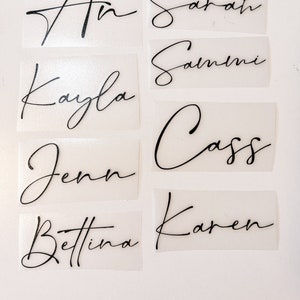 An
Sarah
Kayla
Sammi
Jenn
Cass
Bettina
Karen